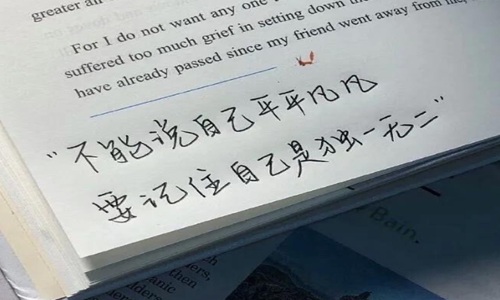 greater an
For I do not want any one
suffered too much grief in setting down the
have already passed since my friend went away from me,
“不能说自己平平凡凡
要记住自己是独一无二”
Bain.